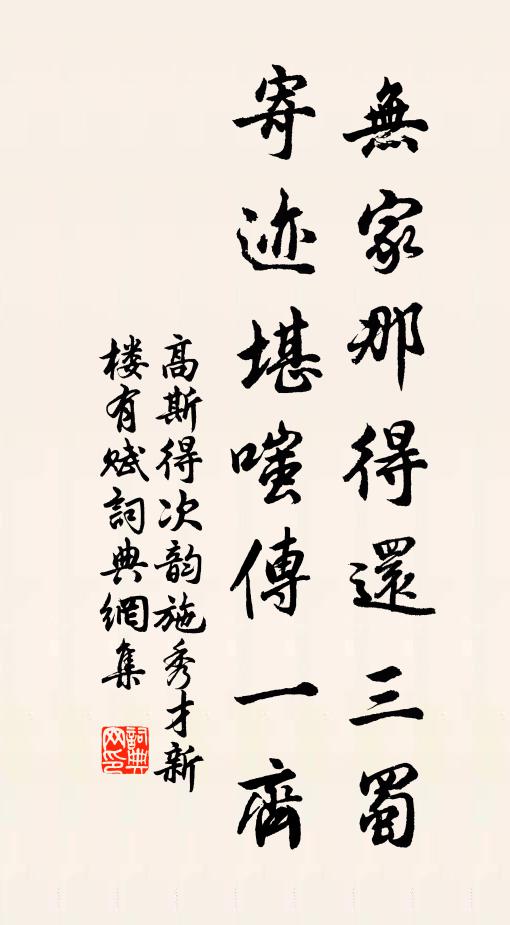 無家那得還三蜀
寄迹堪嗤傳一齊
高斯得次韵施秀才新
楼有赋詞典網集
詞典网印